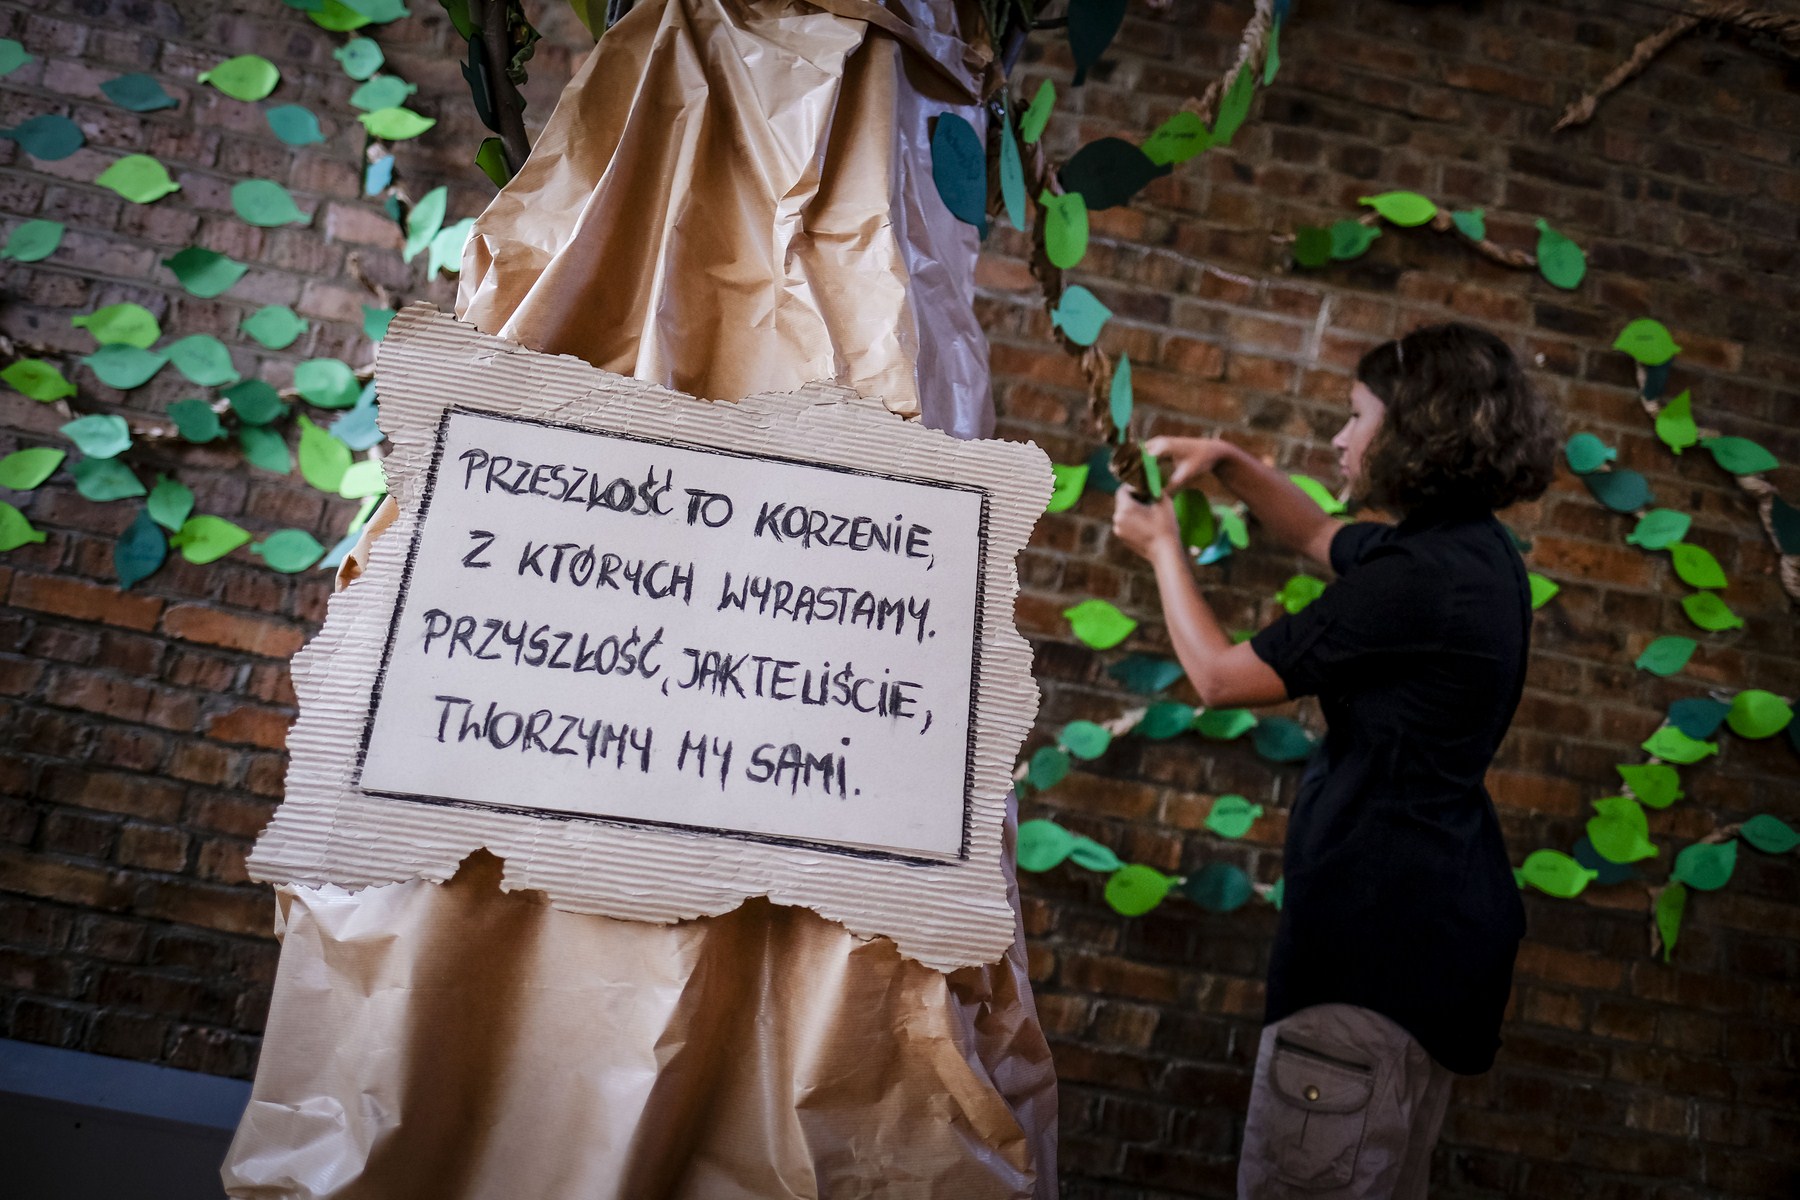 PRZESZŁOŚĆ TO KORZENIE,
Z KTÓRYCH WYRASTAMY.
PRZYSZŁOŚĆ, JAK TE LIŚCIE,
TWORZYMY MY SAMI.